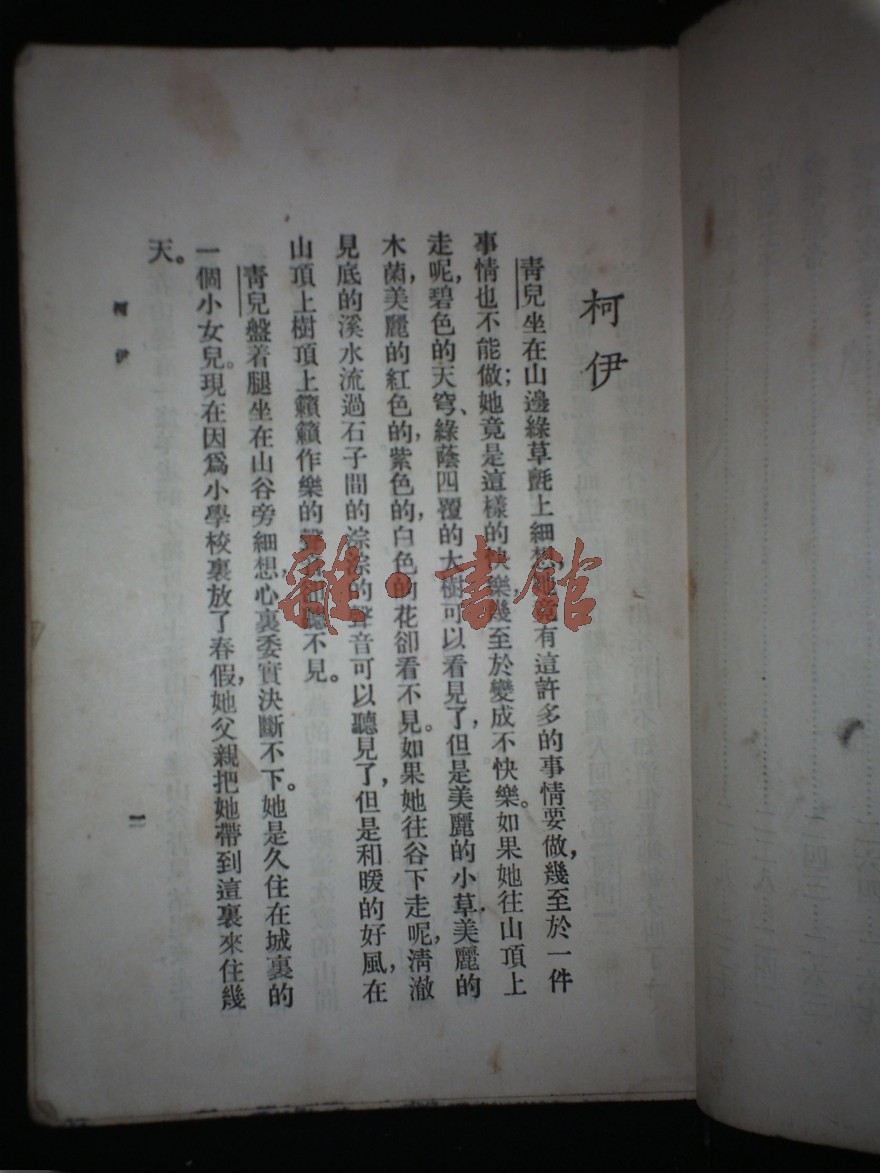 柯伊
青兒坐在山邊綠草氈上細想,她竟有這許多的事情要做,幾至於一件
事情也不能做;她竟是這樣的快樂,幾至於變成不快樂。如果她往山頂上
走呢,碧色的天穹、綠蔭四覆的大樹可以看見了,但是美麗的小草,美麗的
木菌,美麗的紅色的,紫色的,白色的花卻看不見。如果她往谷下走呢,清澈
見底的溪水流過石子間的淙淙的聲音可以聽見了,但是和暖的好風,在
山頂上樹頂上籟籟作樂的聲音聽不見。
青兒盤着腿坐在山谷旁細想,心裏委實決斷不下。她是久住在城裏的
一個小女兒。現在因爲小學校裏放了春假,她父親把她帶到這裏來住幾
天。
柯伊
一
雜·書館